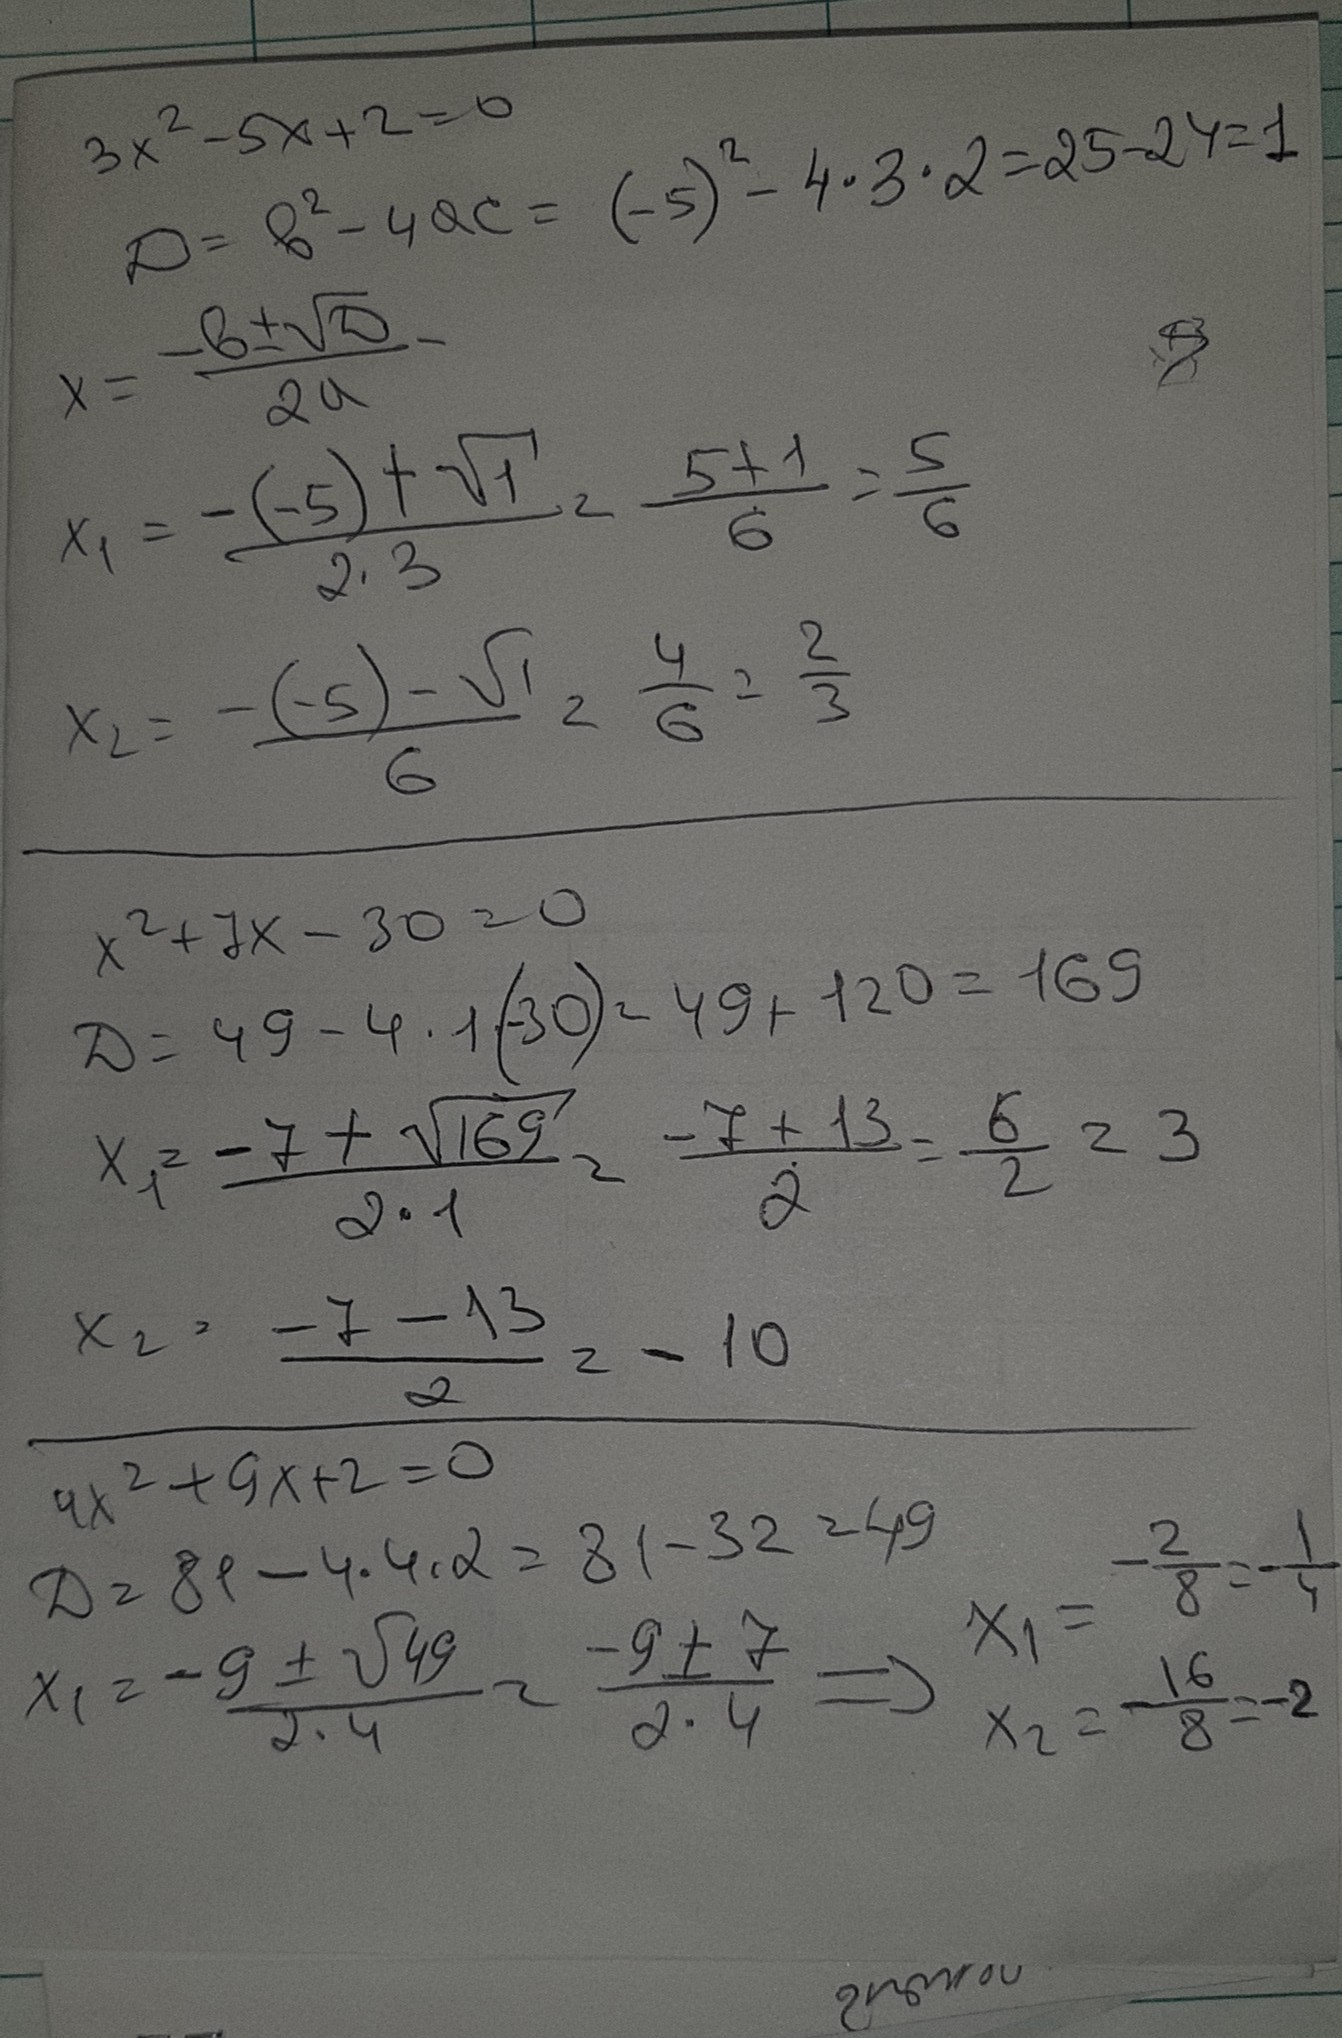 3x² - 5x + 2 = 0
D = b² - 4ac = (-5)² - 4·3·2 = 25 - 24 = 1
x = (-b ± √D)/2a -
x₁ = (-(-5) + √1)/(2·3) = (5+1)/6 = 5/6
x₂ = (-(-5) - √1)/6 = 4/6 = 2/3
x² + 7x - 30 = 0
D = 49 - 4·1(-30) = 49 + 120 = 169
x₁ = (-7 + √169)/(2·1) = (-7 + 13)/2 = 6/2 = 3
x₂ = (-7 - 13)/2 = -10
4x² + 9x + 2 = 0
D = 81 - 4·4·2 = 81 - 32 = 49
x₁ = (-9 ± √49)/(2·4) = (-9 ± 7)/(2·4) ⇒ x₁ = -2/8 = -1/4
x₂ = -16/8 = -2